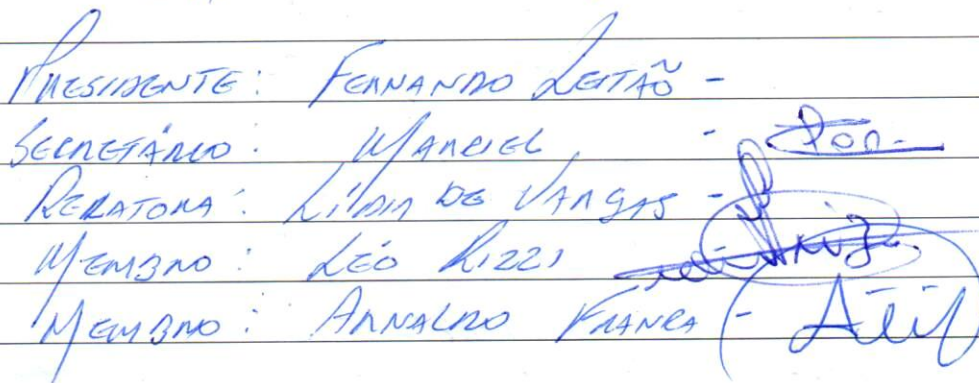 PRESIDENTE: FERNANDO LEITÃO -
SECRETÁRIO: MARCIEL -
RERATORA: LÍDIA DE VARGAS -
MEMBRO: LÉO RIZZI
MEMBRO: ARNALDO FRANÇA -